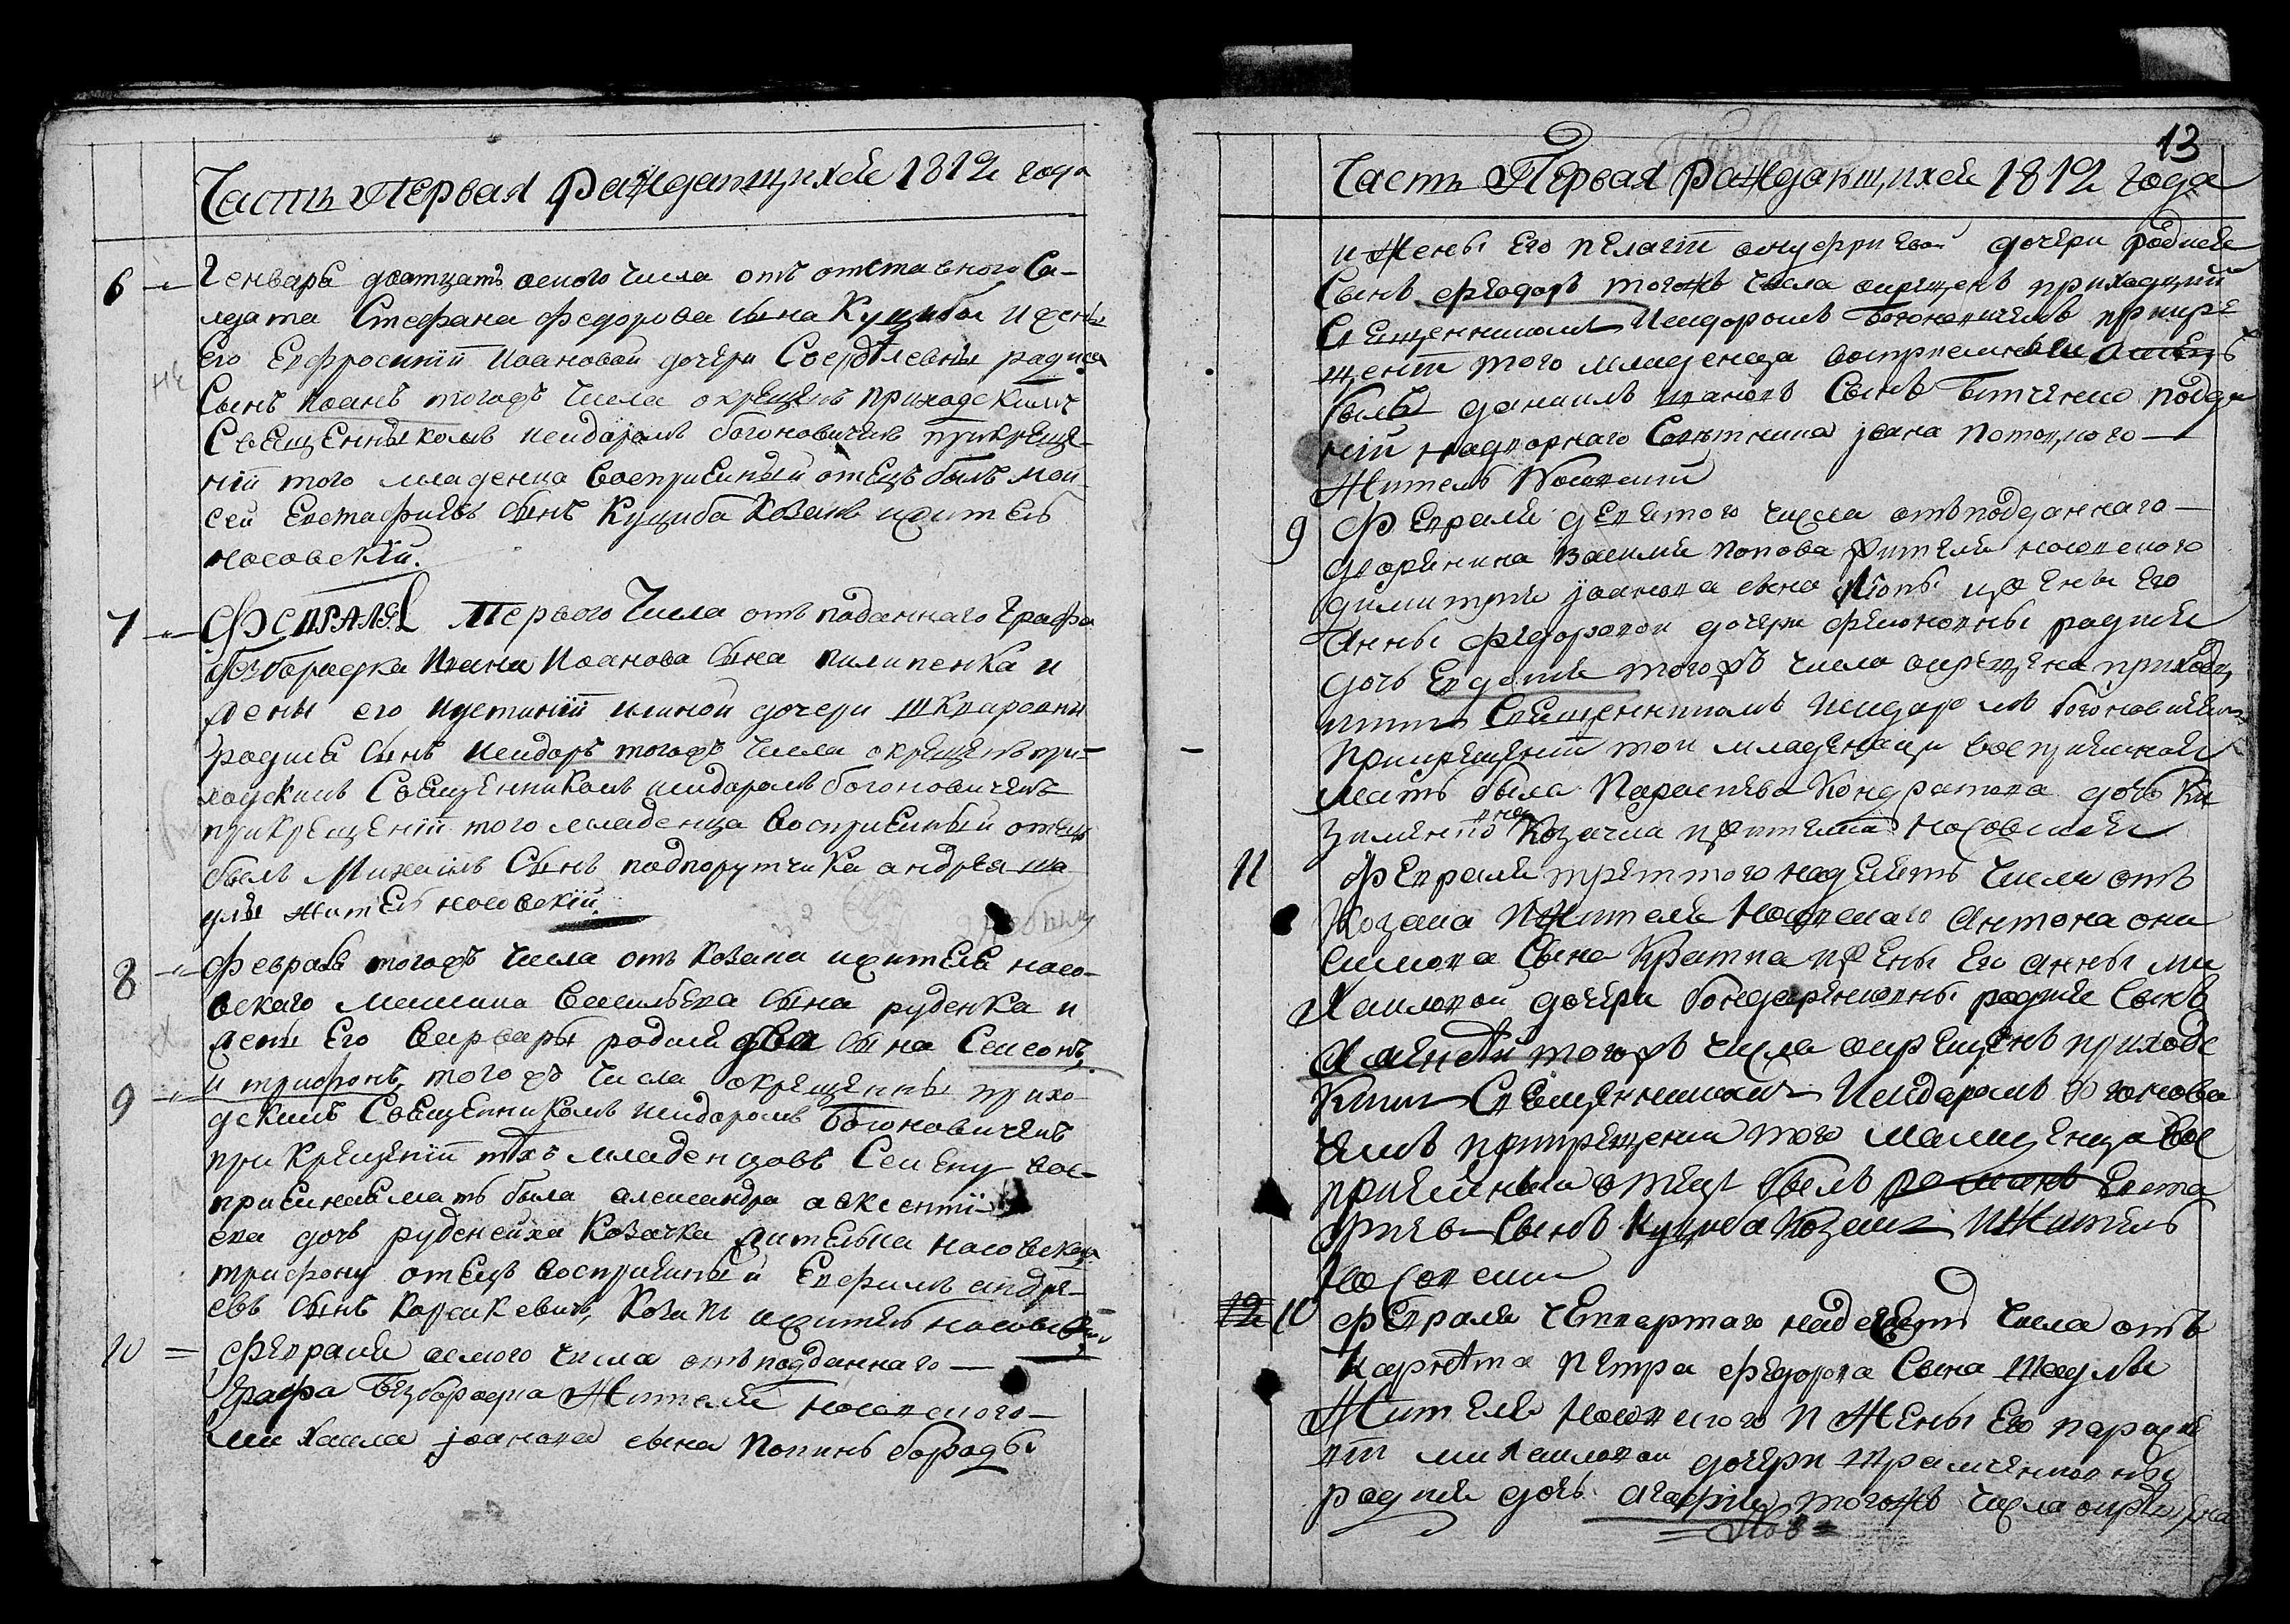 Часть Первая раждающихся 1812 года
6 Генваря дватцать осмого числа отъ отставного Са-
лдата Стефана Федорова сына Куциба и жены
Его Евфросиніи Иоановой дочери радися
Сынъ Иоанъ тогожъ числа окрещенъ приходскимъ
Священныкомъ Исидоромъ богоновичемъ прикреще-
ніи того младенца Восприемный отецъ былъ мои
сей Евстафиевъ сынъ Куциба Козакъ ижитель
носовскій.
7 Февраля Первого Числа отъ поданнаго Графа
Безбородка Ивана Иоанова сына пилипенка и
жены его Иустиніи дочери шкваревны
родися сынъ Исидоръ тогожъ числа окрещенъ при-
ходскимъ Священникомъ исидоромъ богоновичемъ
прикрещеніи того младенца Восприемный отецъ
былъ Михаилъ Сынъ подпорутчика андрея ша
улы житель носовскій.
8 Февраля тогожъ числа отъ козака ижителя носо-
вского Василъева сына руденка и
жены Его варвары родися два сына Симеонъ,
9 и трифонъ, тогожъ числа окрещенны прихо-
дскимъ Священникомъ исидоромъ богоновичемъ
при Крещеніи тѣхъ младенцовъ Семену вос-
приемная мать была александра авксенті-
ева дочь руденкиха Козачка жителька носовская
трифону отецъ восприемный Евфимъ андре-
евъ сынъ Козакъ ижитель носовский
10 февраля осмого числа отъ подданнаго
графа Безбородка Жителя носовского
михаила Іоанова сына Попинъ бороды
13
Первая
Часть Первая раждающихся 1812 года
и Жены Его пелагіи онуфриевой дочери родися
Сынъ феодоръ тогожъ числа окрещенъ приходским
Священникомъ Исидоромъ Богоновичемъ прикре
щеніи того младенца восприемный отецъ
былъ даниилъ Сынъ подда
ній надворнаго Советника Іоана
Житель Носовский
9 Февраля девятого числа отъ подданнаго
дворянина Василия Попова жителя носовского
димитрия Іоанова сына Липы и жены Его
Анны Федоровой дочери родися
дочь Евдокия тогожъ числа окрещена приходс
ким Священникомъ Исидоромъ богоновичемъ
Прикрещеніи той младеницы восприемная
мать была Параскева Кондратова дочь Ки
Козачка ижителка Носовская
11 Февраля треттого надесять числа отъ
Козака и Жителя Носовского Антона они
симова Сына Кратка и жены Его анны ми
хаиловой дочери бондаренковны родися Сынъ
тогожъ числа окрещенъ приходс
ким Священником Исидаромъ богонови
чемъ прикрещении того младенца Вос
приемный отецъ былъ романъ Евста
фиевъ Сынъ Куциба Козакъ и Житель
Носовский
12 10 Февраля четвертого надесять числа отъ
Карнета Петра Федорова Сына Шаулы
Жителя Носовского и Жены Его параске
віи михаиловой дочери
родися дочь агафия тогожъ числа окрещена